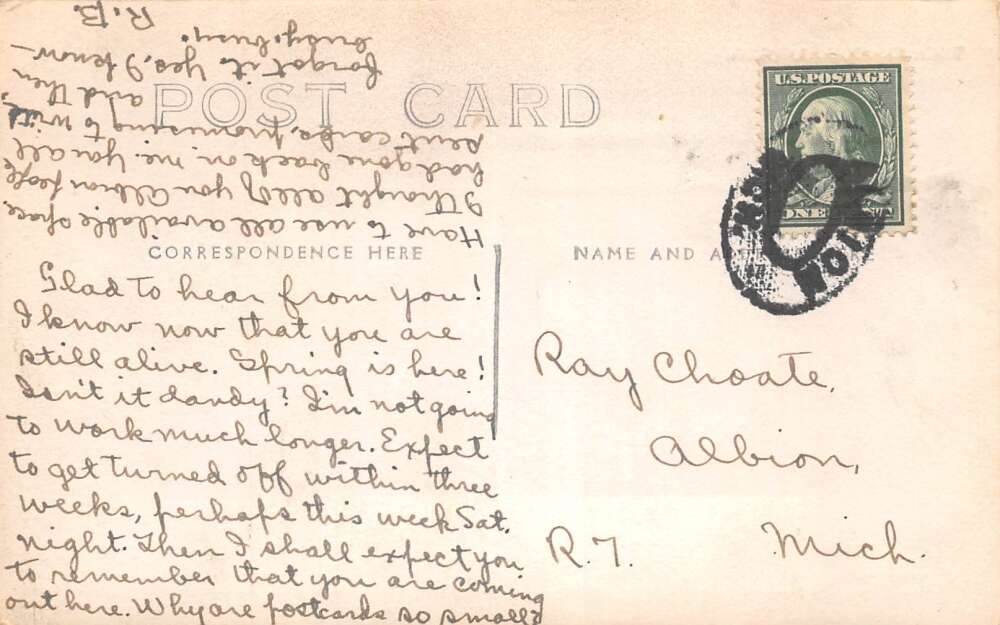 POST CARD
CORRESPONDENCE HERE
Glad to hear from you!
I know now that you are
still alive. Spring is here!
Isn't it dandy? I'm not going
to work much longer. Expect
to get turned off within three
weeks, perhaps this week Sat.
night. Then I shall expect you
to remember that you are coming
out here. Why are postcards so small?
Have to use all available space.
I thought all of you Albion people
had gone back on me. You all
sent cards, promising to write,
and then
forgot it. Yes, I know—
busy, busy.
R.B.
NAME AND
U.S. POSTAGE
ONE CENT
Ray Choate,
Albion,
R.7. Mich.